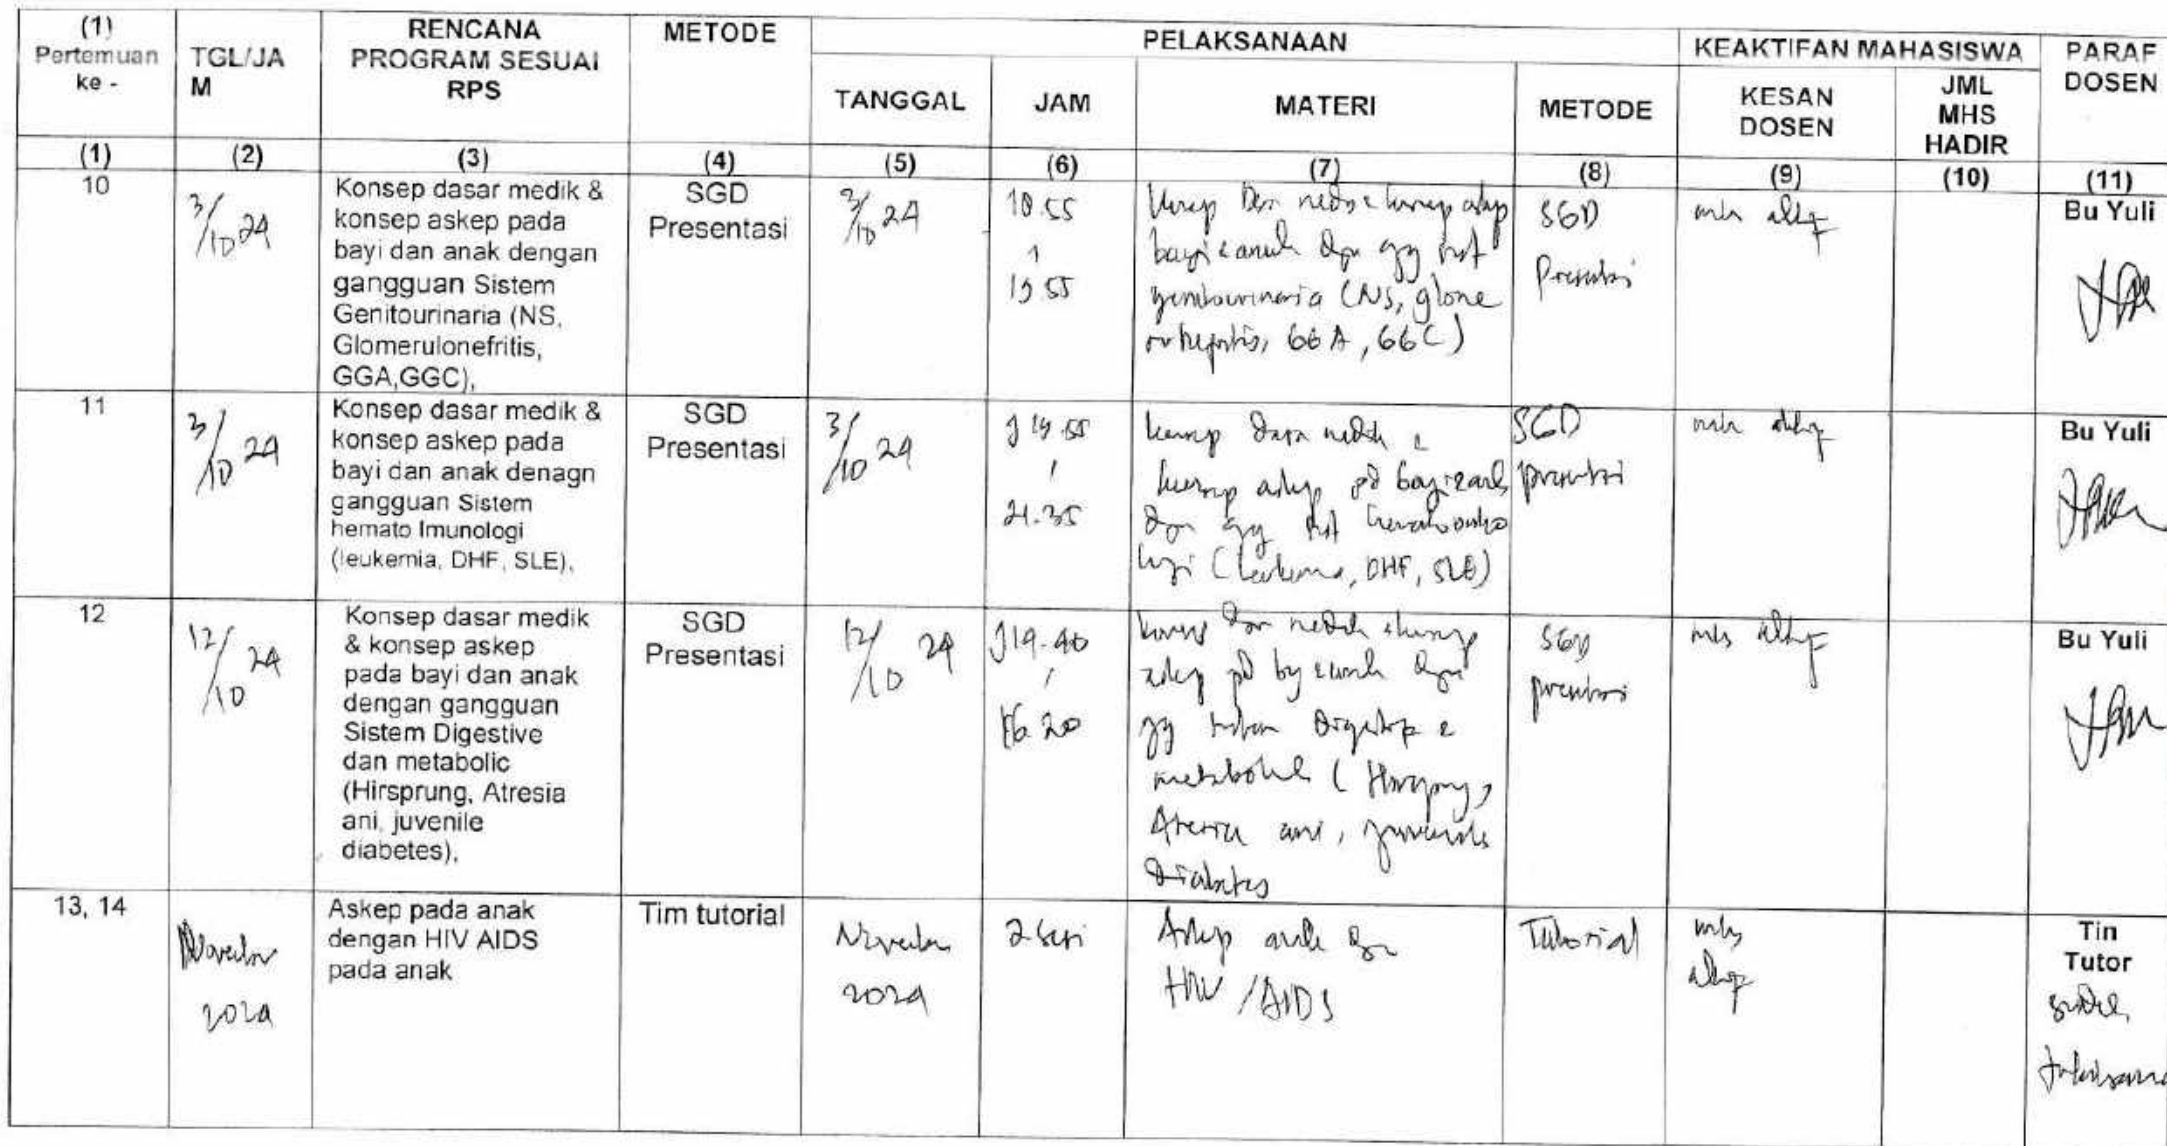 (1)
Pertemuan
ke -
TGL/JA
M
RENCANA
PROGRAM SESUAI
RPS
METODE
PELAKSANAAN
KEAKTIFAN MAHASISWA
PARAF
DOSEN
TANGGAL
JAM
MATERI
METODE
KESAN
DOSEN
JML
MHS
HADIR
(1)
(2)
(3)
(4)
(5)
(6)
(7)
(8)
(9)
(10)
(11)
10
3/10 24
Konsep dasar medik &
konsep askep pada
bayi dan anak dengan
gangguan Sistem
Genitourinaria (NS,
Glomerulonefritis,
GGA,GGC),
SGD
Presentasi
3/10 24
bayi & anak dgn gg
genitourinaria (NS, glome
GGA, GGC)
SGD
Presentasi
mhs aktif
Bu Yuli
11
3/10 24
Konsep dasar medik &
konsep askep pada
bayi dan anak denagn
gangguan Sistem
hemato Imunologi
(leukemia, DHF, SLE),
SGD
Presentasi
3/10 24
21.35
konsep dasar medik &
konsep askep pd bayi & anak
dgn gg
logi (Leukemia, DHF, SLE)
SGD
presentasi
mhs aktif
Bu Yuli
12
12/10 24
Konsep dasar medik
& konsep askep
pada bayi dan anak
dengan gangguan
Sistem Digestive
dan metabolic
(Hirsprung, Atresia
ani, juvenile
diabetes),
SGD
Presentasi
12/10 24
konsep dsr medik & konsep
askep pd by & anak dgn
gg sistem Digestif &
metabolik ( Hirsprung,
Atresia ani, juvenile
Diabetes
SGD
presentasi
mhs aktif
Bu Yuli
13, 14
November
2024
Askep pada anak
dengan HIV AIDS
pada anak
Tim tutorial
November
2024
Askep anak dgn
HIV / AIDS
Tutorial
mhs
aktif
Tin
Tutor